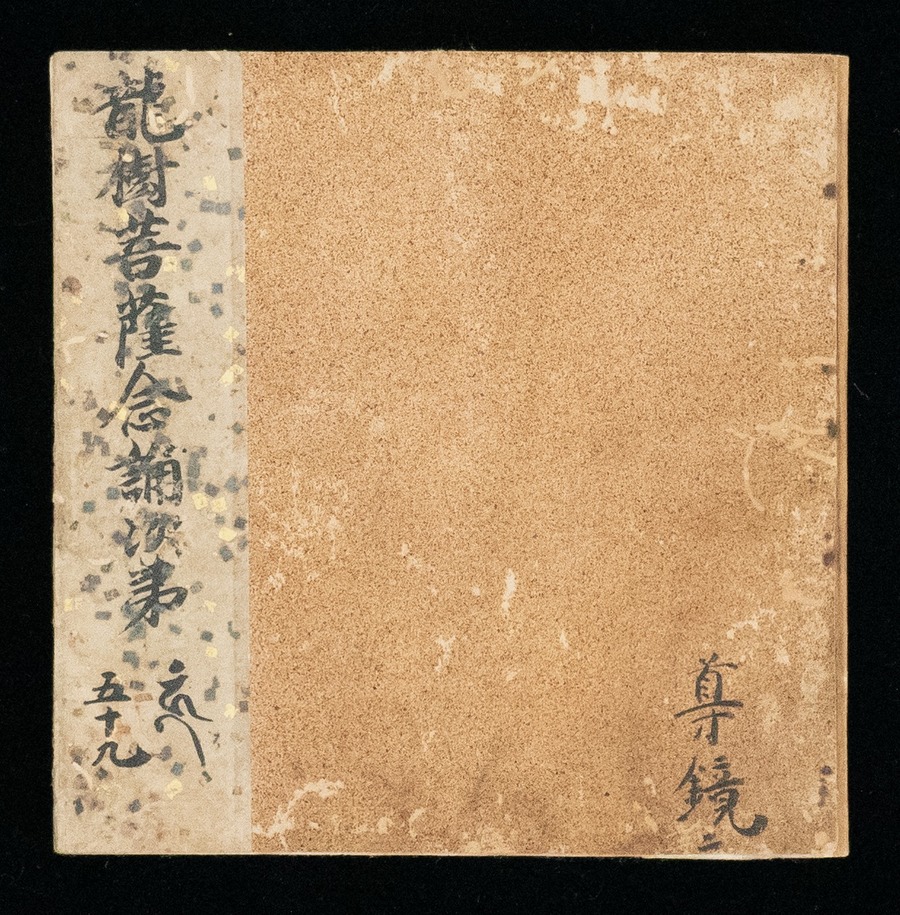 尊鏡
二
龍樹菩薩念誦次第
五十九